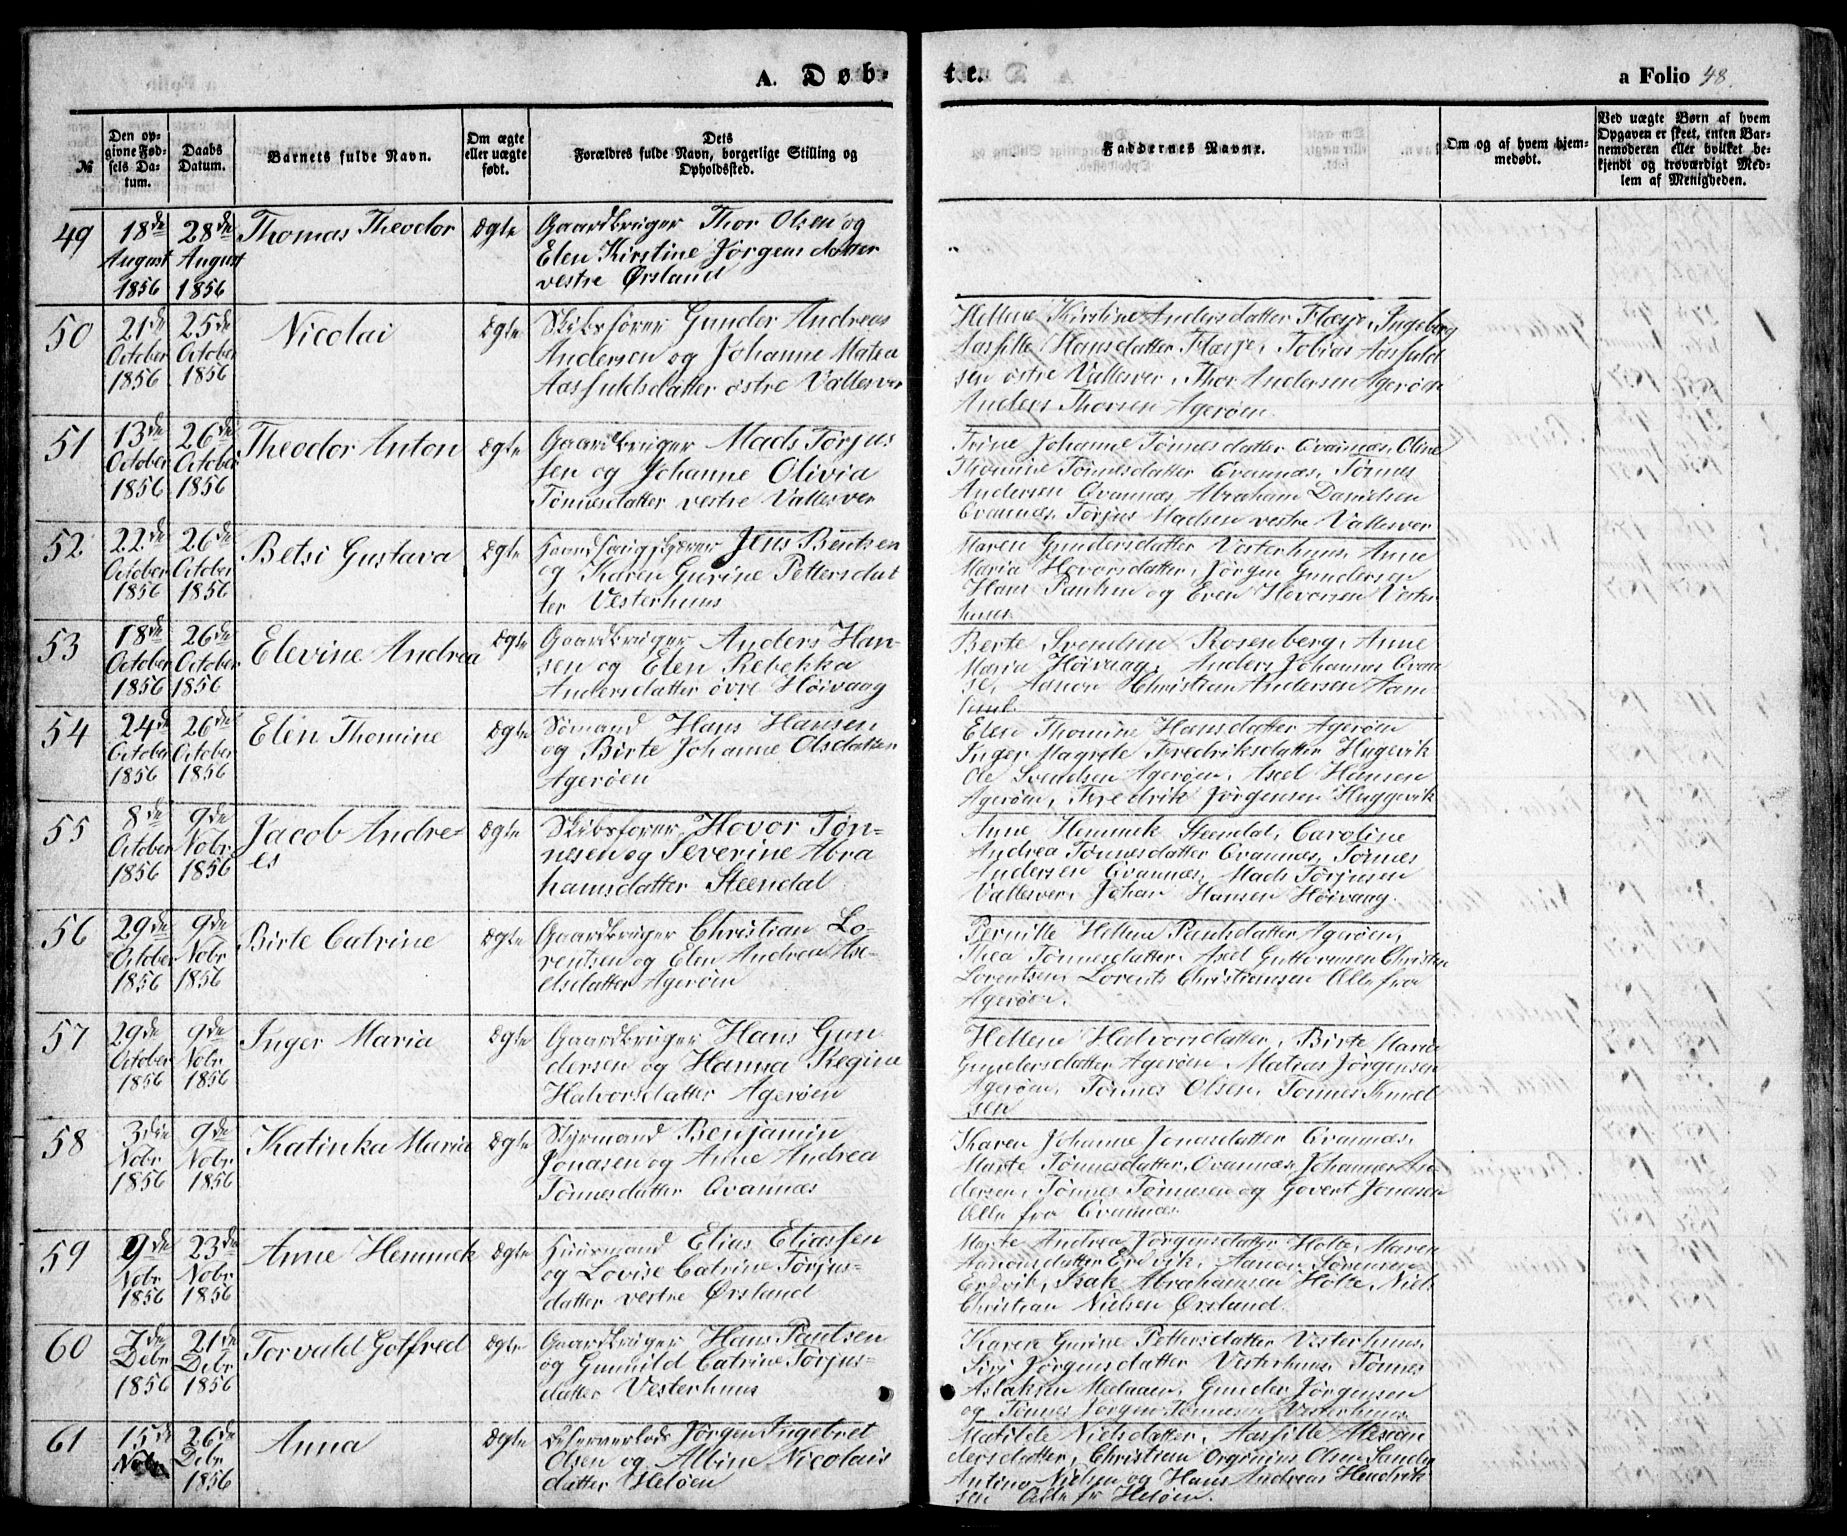 A. Døb-
te.
a Folio 48.
№
Den op-
givne Fød-
sels Da-
tum.
Daabs
Datum.
Barnets fulde Navn.
Om ægte
eller uægte
født.
Dets
Forældres fulde Navn, borgerlige Stilling og
Opholdssted.
Faddernes Navne.
Om og af hvem hjem-
medøbt.
Ved uægte Børn af hvem
Opgaven er skeet, enten Bar-
nemoderen eller hvilket be-
kjendt og troværdigt Med-
lem af Menigheden.
49
18de
August
1856
28de
August
1856
Thomas Theodor
Ægte
Gaardbruger Thor Olsen og
Elen Kirstine Jørgensdatter
vestre Ørsland
50
21de
October
1856
25de
October
1856
Nicolai
Ægte
Skibsfører Gunder Andreas
Andersen og Johanne Matea
Aasfuldsdatter østre Vallesver
Hellene Kirstine Andersdatter Flæsje, Ingeborg
Aasfille Hansdatter Flæsje, Tobias Aasfuld-
sen østre Vallesver, Thor Andersen Agerøen
Anders Thorsen Agerøen
51
13de
October
1856
26de
October
1856
Theodor Anton
Ægte
Gaardbruger Mads Tørjus
sen og Johanne Olivia
Tønnesdatter vestre Vallesver
Trine Johanne Tønnesdatter Qvannæs, Oline
Thomine Tønnesdatter Qvannæs, Tønnes
Andersen Qvannæs, Abraham Danielsen
Qvannæs, Tørjus Madsen vestre Vallesver
52
22de
October
1856
26de
October
1856
Betsi Gustava
Ægte
Jens Bentsen
og Karen Gurine Pettersdat
ter Vesterhuus
Maren Gundersdatter Vesterhuus, Anne
Maria Hovorsdatter, Jørgen Gundersen
Hans Paulsen og Even Hovorsen Vester
huus
53
18de
October
1856
26de
October
1856
Elevine Andrea
Ægte
Gaardbruger Anders Han-
sen og Elen Rebekka
Andersdatter øvre Høivaag
Berte Svendsen Rosenberg, Anne
Maria Høivaag, Anders Johannes
Aanon Christian Andersen
54
24de
October
1856
26de
October
1856
Elen Thomine
Ægte
Sømand Hans Hansen
og Birte Johanne Olsdatter
Agerøen
Elen Thomine Hansdatter Agerøen
Inger Magrete Fredriksdatter Hygevik
Ole Svendsen Agerøen, Axel Hansen
Agerøen, Fredrik Jørgensen Huggevik
55
8de
October
1856
9de
Nobr
1856
Jacob Andre-
es
Ægte
Skibsfører Hovor Tøn-
nesen og Severine Abra
hamsdatter Steendal
Anne Hemmek Steendal, Caroline
Andrea Tønnesdatter Qvannæs, Tønnes
Andersen Qvannæs, Mads Tørjusen
Vallesver, Johan Hansen Høivaag
56
29de
October
1856
9de
Nobr
1856
Birte Catrine
Ægte
Gaardbruger Christian Lo-
rentsen og Elen Andrea Axe-
elsdatter Agerøen
Pernille Hellene Paulsdatter Agerøen,
Thea Tønnesdatter, Axel Guttormsen Christen
Lorentsen, Lorents Christiansen Alle fra
Agerøen.
57
29de
October
1856
9de
Nobr
1856
Inger Maria
Ægte
Gaardbruger Hans Gun
dersen og Hanna Regine
Halvorsdatter Agerøen
Hellene Halvorsdatter, Birte Marie
Gundersdatter Agerøen, Matias Jørgensen
Agerøen, Tønnes Olsen, Tønnes Knud-
sen
58
3die
Nobr
1856
9de
Nobr
1856
Katinka Maria
Ægte
Styrmand Benjamin
Jonasen og Anne Andrea
Tønnesdatter Qvannæs
Karen Johanne Jonasdatter Qvannæs,
Marte Tønnesdatter Qvannæs, Johannes An-
dersen, Tønnes Tønnesen og Govert Jonasen
Alle fra Qvannæs
59
9de
Nobr
1856
23de
Nobr
1856
Anne Hemmek
Ægte
Huusmand Elias Eliassen
og Lovise Catrine Tørjus-
datter vestre Ørsland
Marte Andrea Jørgensdatter Holte, Maren
Aanonsdatter Erdvik, Aanon Sørensen
Erdvik, Isak Abrahamsen Holte, Niels
Christian Nielsen Ørsland
60
7de
Debr
1856
21de
Debr
1856
Torvald Gotfred
Ægte
Gaardbruger Hans Paulsen
og Gunnild Catrine Tørjus-
datter Vesterhuus
Karen Gurine Pettersdatter Vesterhuus,
Siri Jørgensdatter Vesterhuus, Tønnes
Aslaksen Medaaen, Gunder Jørgensen
og Tønnes Jørgen Tønnesen Vesterhuus
61
15de
Nobr
26de
Debr
1856
Anna
Ægte
Reserverlods Jørgen Ingebret
Olsen og Albine Nicolais
datter Heløen
Matilde Nielsdatter, Aasfille
dersdatter, Christian Olsen
Antino Nielsen og Hans Andreas Hendrik-
sen Alle fr Heløen.